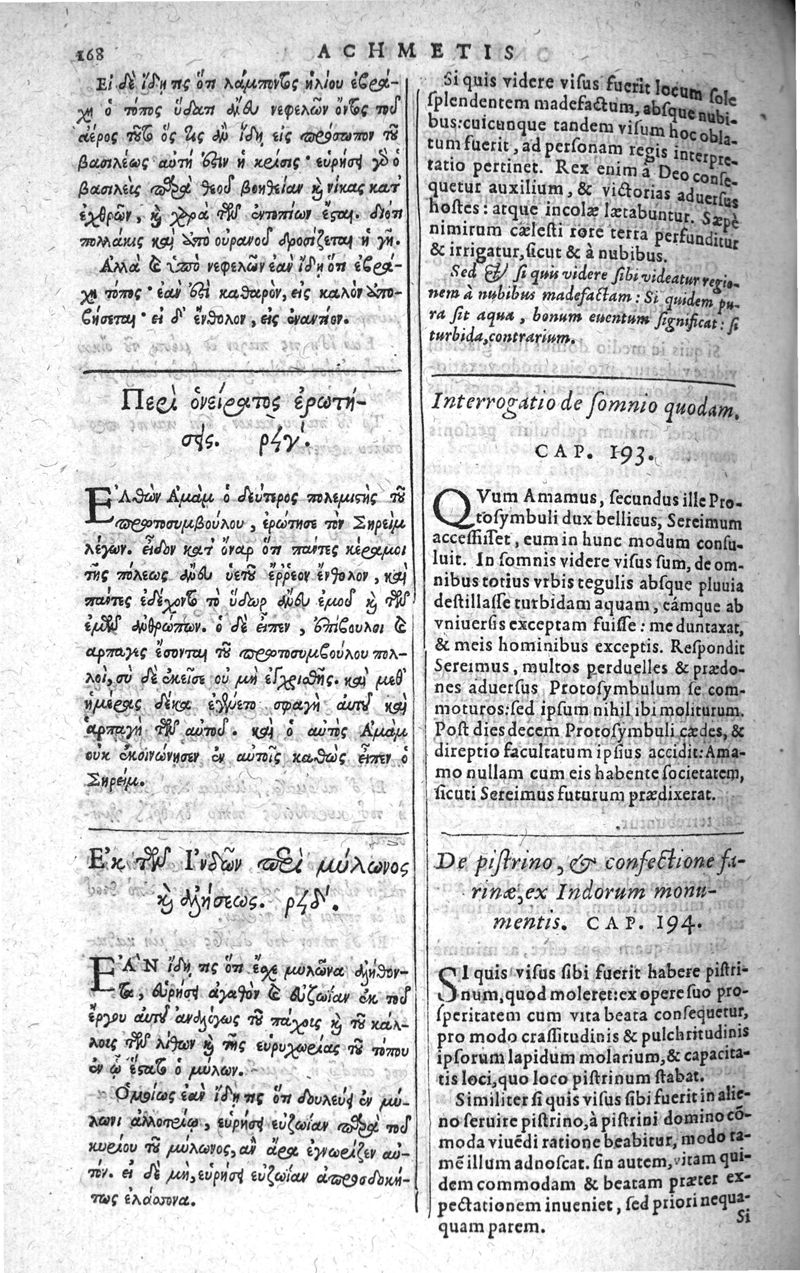 168 ACHMETIS
Εἰ δὲ ἴδῃ τις ὅτι λάμποντος ἡλίου ἐβρά-
χη ὁ τόπος ὕδατι ἄνευ νεφελῶν ὄντος τοῦ
ἀέρος τοῦτο ὃς τις ἂν ἴδῃ εἰς πρόσωπον τοῦ
βασιλέως αὐτὴ ἐστὶν ἡ κρίσις· εὑρήσει γὰρ ὁ
βασιλεὺς παρὰ θεοῦ βοηθείαν καὶ νίκας κατ'
ἐχθρῶν, καὶ χαρὰ τῶν ἐντοπίων ἔσται. διότι
πολλάκις καὶ ἀπὸ οὐρανοῦ δροσίζεται ἡ γῆ.
Ἀλλὰ καὶ ὑπὸ νεφελῶν ἐὰν ἴδῃ ὅτι ἐβρά-
χη τόπος· ἐὰν ἐστὶ καθαρὸν, εἰς καλὸν ἀπο-
βήσεται· εἰ δ' ἔνθολον, εἰς ἐναντίον.
Περὶ ὀνείρατος ἐρωτή-
σεως. ρϟγ'.
ΕΛθὼν Ἀμὰμ ὁ δεύτερος πολεμιστὴς τοῦ
πρωτοσυμβούλου, ἐρώτησε τὸν Σηρεὶμ
λέγων. εἶδον κατ' ὄναρ ὅτι πάντες κέραμοι
τῆς πόλεως ἄνευ ὑετοῦ ἔρρεον ἔνθολον, καὶ
πάντες ἐδέχοντο τὸ ὕδωρ ἄνευ ἐμοῦ καὶ τῶν
ἐμῶν ἀνθρώπων. ὁ δὲ εἶπεν, ἐπίβουλοι καὶ
ἅρπαγες ἔσονται τοῦ πρωτοσυμβούλου πολ-
λοὶ, σὺ δὲ ἐκεῖσε οὐ μὴ ἐγχριαθῇς. καὶ μεθ'
ἡμέρας δέκα ἐγένετο σφαγὴ αὐτοῦ καὶ
ἁρπαγὴ τῶν αὐτοῦ. καὶ ὁ αὐτὸς Ἀμὰμ
οὐκ ἐκοινώνησεν ἐν αὐτοῖς καθὼς εἶπεν ὁ
Σηρείμ.
Ἐκ τῶν Ἰνδῶν περὶ μύλωνος
καὶ ἀλήσεως. ρϟδ'.
ΕΑΝ ἴδῃ τις ὅτι ἔχει μύλωνα ἀλήθον-
τα, εὑρήσει ἀγαθὸν καὶ εὐζωΐαν ἐκ τοῦ
ἔργου αὐτοῦ ἀναλόγως τοῦ πάχους καὶ τοῦ κάλ-
λους τῶν λίθων καὶ τῆς εὐρυχωρίας τοῦ τόπου
ἐν ᾧ ἵστατο ὁ μύλων.
Ὁμοίως ἐὰν ἴδῃ τις ὅτι δουλεύει ἐν μύ-
λωνι ἀλλοτρίῳ, εὑρήσει εὐζωΐαν παρὰ τοῦ
κυρίου τοῦ μύλωνος, ἂν ἄρα ἐγνωρίζεν αὐ-
τόν. εἰ δὲ μὴ, εὑρήσει εὐζωΐαν ἀπροσδοκή-
τως ἐλάσσονα.
Si quis videre visus fuerit locum sole
splendentem madefactum, absque nubi-
bus: cuicunque tandem visum hoc obla-
tum fuerit, ad personam regis interpre-
tatio pertinet. Rex enim à Deo conse-
quetur auxilium, & victorias aduersus
hostes: atque incolæ lætabuntur. Sæpè
nimirum cælesti rore terra perfunditur
& irrigatur, sicut & à nubibus.
Sed & si quis videre sibi videatur regio-
nem à nubibus madefactam: Si quidem pu-
ra sit aqua, bonum euentum significat: si
turbida, contrarium.
Interrogatio de somnio quodam.
CAP. 193.
QVum Amamus, secundus ille Pro-
tosymbuli dux bellicus, Sereimum
accessisset, eum in hunc modum consu-
luit. In somnis videre visus sum, de om-
nibus totius vrbis tegulis absque pluuia
destillasse turbidam aquam, eámque ab
vniuersis exceptam fuisse: me duntaxat,
& meis hominibus exceptis. Respondit
Sereimus, multos perduelles & prædo-
nes aduersus Protosymbulum se com-
moturos: sed ipsum nihil ibi moliturum.
Post dies decem Protosymbuli cædes, &
direptio facultatum ipsius accidit: Ama-
mo nullam cum eis habente societatem,
sicuti Sereimus futurum prædixerat.
De pistrino, & confectione fa-
rinæ, ex Indorum monu-
mentis. CAP. 194.
SI quis visus sibi fuerit habere pistri-
num, quod moleret: ex opere suo pro-
speritatem cum vita beata consequetur,
pro modo crassitudinis & pulchritudinis
ipsorum lapidum molarium, & capacita-
tis loci, quo loco pistrinum stabat.
Similiter si quis visus sibi fuerit in alie-
no seruire pistrino, à pistrini domino cō-
moda viuēdi ratione beabitur, modo ta-
mē illum adnoscat. sin autem, vitam qui-
dem commodam & beatam præter ex-
pectationem inueniet, sed priori nequa-
quam parem.
Si